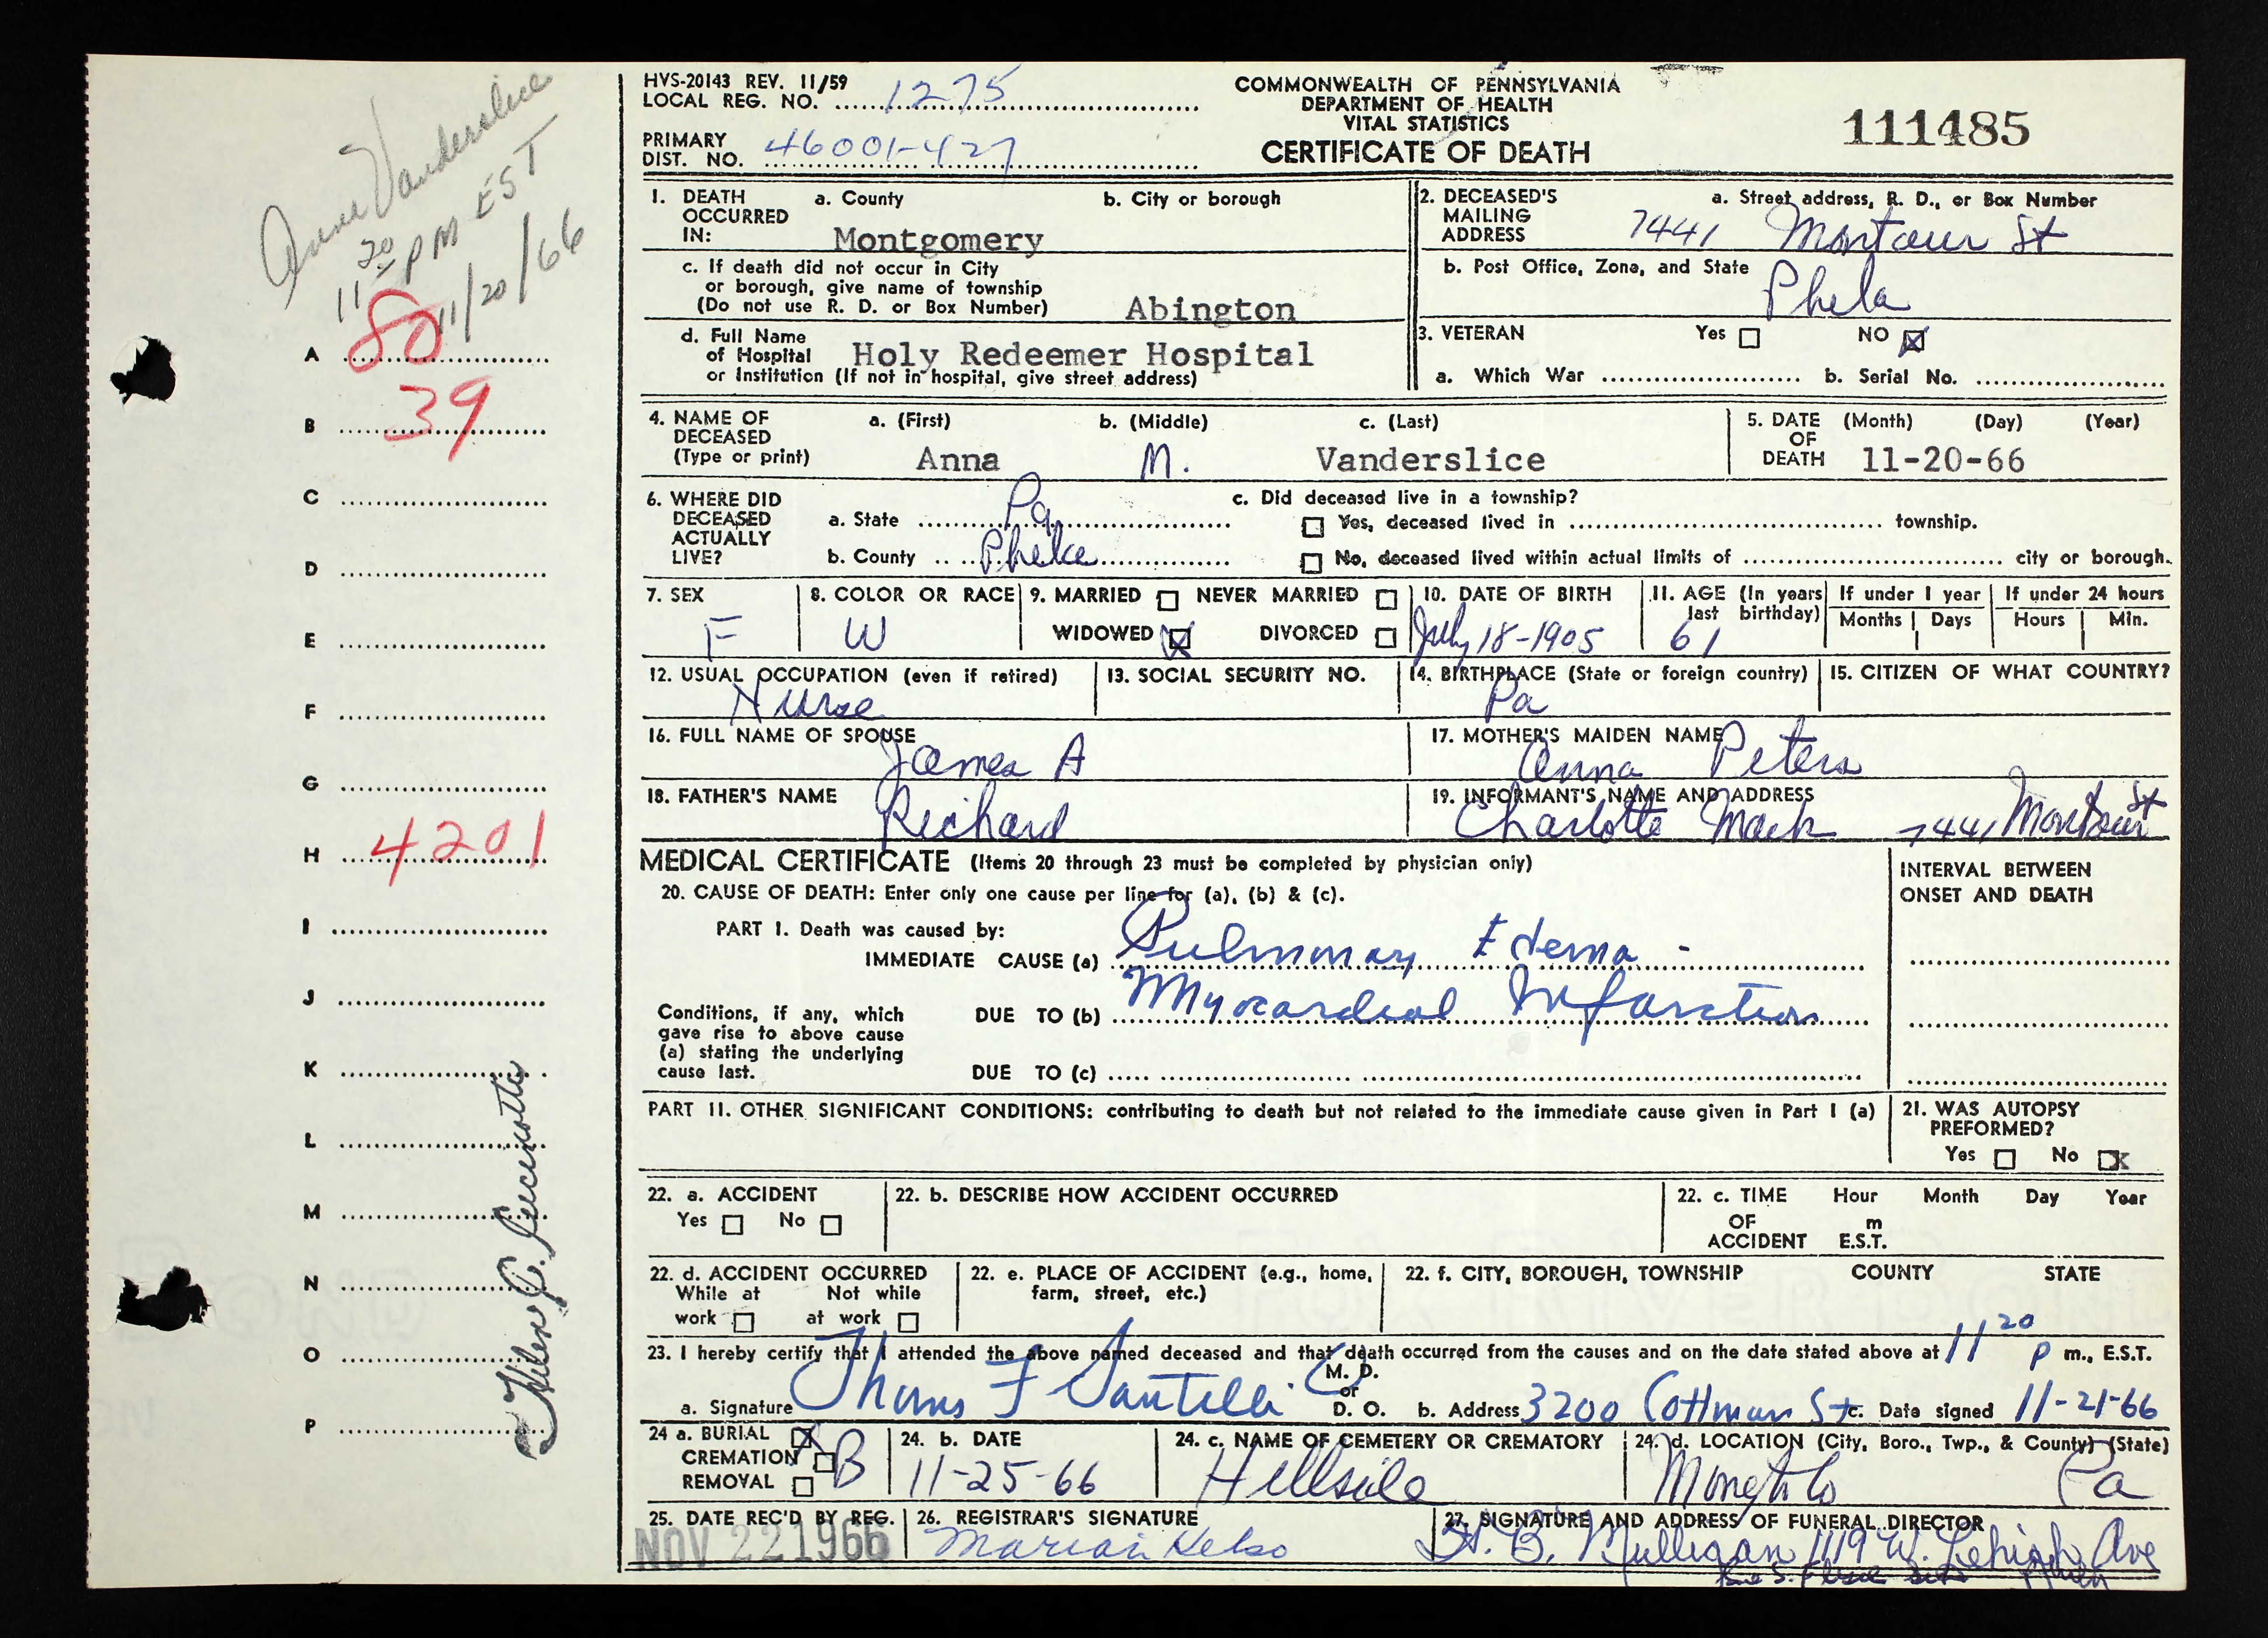 Anna Vanderslice
11 20 PM EST
11/20/66
A 80
B 39
C
D
E
F
G
H 4201
I
J
K
L
M
N
O
P
HVS-20143 REV. 11/59
LOCAL REG. NO. 1275
PRIMARY
DIST. NO. 46001-427
COMMONWEALTH OF PENNSYLVANIA
DEPARTMENT OF HEALTH
VITAL STATISTICS
CERTIFICATE OF DEATH
111485
1. DEATH OCCURRED IN: a. County b. City or borough
Montgomery
c. If death did not occur in City
or borough, give name of township
(Do not use R. D. or Box Number) Abington
d. Full Name
of Hospital Holy Redeemer Hospital
or Institution (If not in hospital, give street address)
2. DECEASED'S MAILING ADDRESS a. Street address, R. D., or Box Number
7441 Montour St
b. Post Office, Zone, and State
Phila
3. VETERAN Yes NO X
a. Which War b. Serial No.
4. NAME OF DECEASED (Type or print) a. (First) b. (Middle) c. (Last)
Anna M. Vanderslice
5. DATE OF DEATH (Month) (Day) (Year)
11-20-66
6. WHERE DID DECEASED ACTUALLY LIVE?
a. State Pa
b. County Phila
c. Did deceased live in a township?
Yes, deceased lived in township.
No, deceased lived within actual limits of city or borough.
7. SEX F
8. COLOR OR RACE W
9. MARRIED NEVER MARRIED
WIDOWED X DIVORCED
10. DATE OF BIRTH
July 18-1905
11. AGE (In years last birthday) 61
If under 1 year
Months Days
If under 24 hours
Hours Min.
12. USUAL OCCUPATION (even if retired)
Nurse
13. SOCIAL SECURITY NO.
14. BIRTHPLACE (State or foreign country)
Pa
15. CITIZEN OF WHAT COUNTRY?
16. FULL NAME OF SPOUSE
James A
17. MOTHER'S MAIDEN NAME
Anna Peters
18. FATHER'S NAME
Richard
19. INFORMANT'S NAME AND ADDRESS
Charlotte Mack 7441 Montour St
MEDICAL CERTIFICATE (Items 20 through 23 must be completed by physician only)
20. CAUSE OF DEATH: Enter only one cause per line for (a), (b) & (c).
PART I. Death was caused by:
IMMEDIATE CAUSE (a) Pulmonary Edema -
Conditions, if any, which
gave rise to above cause
(a) stating the underlying
cause last.
DUE TO (b) Myocardial Infarction
DUE TO (c)
INTERVAL BETWEEN
ONSET AND DEATH
PART II. OTHER SIGNIFICANT CONDITIONS: contributing to death but not related to the immediate cause given in Part I (a)
21. WAS AUTOPSY
PREFORMED?
Yes No X
22. a. ACCIDENT
Yes No
22. b. DESCRIBE HOW ACCIDENT OCCURRED
22. c. TIME OF ACCIDENT Hour Month Day Year
m
E.S.T.
22. d. ACCIDENT OCCURRED
While at work Not while at work
22. e. PLACE OF ACCIDENT (e.g., home,
farm, street, etc.)
22. f. CITY, BOROUGH, TOWNSHIP COUNTY STATE
23. I hereby certify that I attended the above named deceased and that death occurred from the causes and on the date stated above at 11 20 P m., E.S.T.
a. Signature Thomas F Santilli M. D. or D. O. b. Address 3200 Cottman St c. Date signed 11-21-66
24 a. BURIAL X
CREMATION B
REMOVAL
24. b. DATE
11-25-66
24. c. NAME OF CEMETERY OR CREMATORY
Hillside
24. d. LOCATION (City, Boro., Twp., & County) (State)
Pa
25. DATE REC'D BY REG.
NOV 22 1966
26. REGISTRAR'S SIGNATURE
Marian Kelso
27. SIGNATURE AND ADDRESS OF FUNERAL DIRECTOR
H. B. Mulligan 1119 W. Lehigh Ave